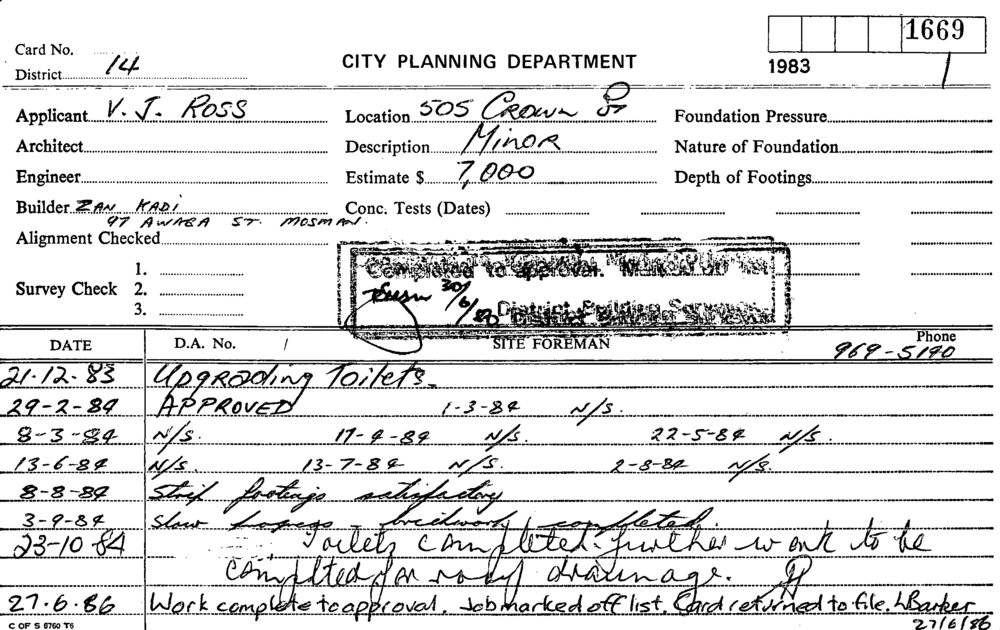 1669
Card No.
District 14
CITY PLANNING DEPARTMENT
1983
Applicant V. J. ROSS
Location 505 CROWN St
Foundation Pressure
Architect
Description MINOR
Nature of Foundation
Engineer
Estimate $ 7,000
Depth of Footings
Builder ZAN KADI
97 AWABA ST. MOSMAN.
Conc. Tests (Dates)
Alignment Checked
Completed to approval.
1.
Survey Check 2.
3.
30/6/86
District Building
DATE D.A. No. / SITE FOREMAN Phone
969-5190
21.12.83 Upgrading Toilets.
29-2-84 APPROVED 1-3-84 N/S.
8-3-84 N/S. 17-4-84 N/S. 22-5-84 N/S.
13-6-84 N/S. 13-7-84 N/S. 2-8-84 N/S.
8-8-84 Strip footings satisfactory
3-9-84 Slow progress - brickwork completed.
23-10-84 Toilets completed. further work to be
completed for roof drainage.
27.6.86 Work complete to approval. Job marked off list. Card returned to file. L Barker
27/6/86
C OF S 5760 T6